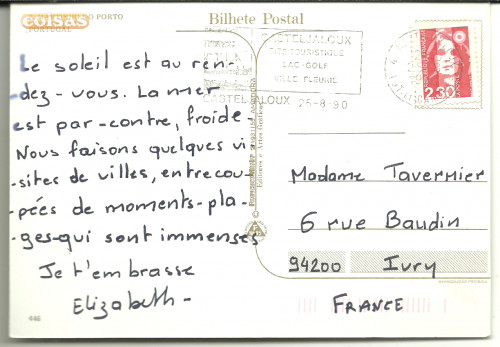 coisas
PORTO
Bilhete Postal
CASTELJALOUX
SITE TOURISTIQUE
LAC-GOLF
VILLE FLEURIE
CASTELJALOUX 25-8-90
2,30
Le soleil est au ren-
dez-vous. La mer
est par-contre, froide-
Nous faisons quelques vi-
-sites de villes, entrecou-
-pées de moments-pla-
-ges-qui sont immenses
Je t'embrasse
Elizabeth-
Madame Tavernier
6 rue Baudin
94200 Ivry
FRANCE